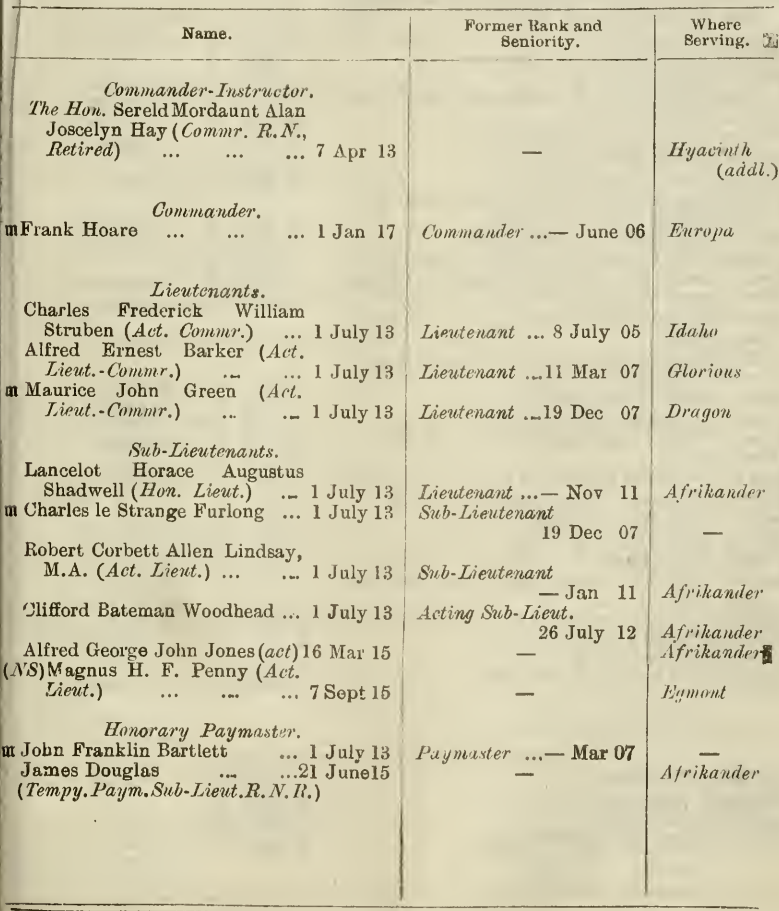 Name. Former Rank and Seniority. Where Serving.
Commander-Instructor.
The Hon. Sereld Mordaunt Alan
Joscelyn Hay (Commr. R.N.,
Retired) ... ... ... 7 Apr 13 — Hyacinth
(addl.)
Commander.
m Frank Hoare ... ... ... 1 Jan 17 Commander ...— June 06 Europa
Lieutenants.
Charles Frederick William
Struben (Act. Commr.) ... 1 July 13 Lieutenant ... 8 July 05 Idaho
Alfred Ernest Barker (Act.
Lieut.-Commr.) ... ... 1 July 13 Lieutenant ...11 Mar 07 Glorious
m Maurice John Green (Act.
Lieut.-Commr.) ... ... 1 July 13 Lieutenant ...19 Dec 07 Dragon
Sub-Lieutenants.
Lancelot Horace Augustus
Shadwell (Hon. Lieut.) ... 1 July 13 Lieutenant ...— Nov 11 Afrikander
m Charles le Strange Furlong ... 1 July 13 Sub-Lieutenant
19 Dec 07 —
Robert Corbett Allen Lindsay,
M.A. (Act. Lieut.) ... ... 1 July 13 Sub-Lieutenant
— Jan 11 Afrikander
Clifford Bateman Woodhead ... 1 July 13 Acting Sub-Lieut.
26 July 12 Afrikander
Alfred George John Jones (act) 16 Mar 15 — Afrikander
(NS) Magnus H. F. Penny (Act.
Lieut.) ... ... ... 7 Sept 15 — Egmont
Honorary Paymaster.
m John Franklin Bartlett ... 1 July 13 Paymaster ...— Mar 07 —
James Douglas ... ...21 June 15 — Afrikander
(Tempy. Paym. Sub-Lieut. R.N.R.)